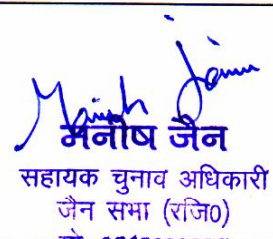 Manish Jain
मनीष जैन
सहायक चुनाव अधिकारी
जैन सभा (रजि0)